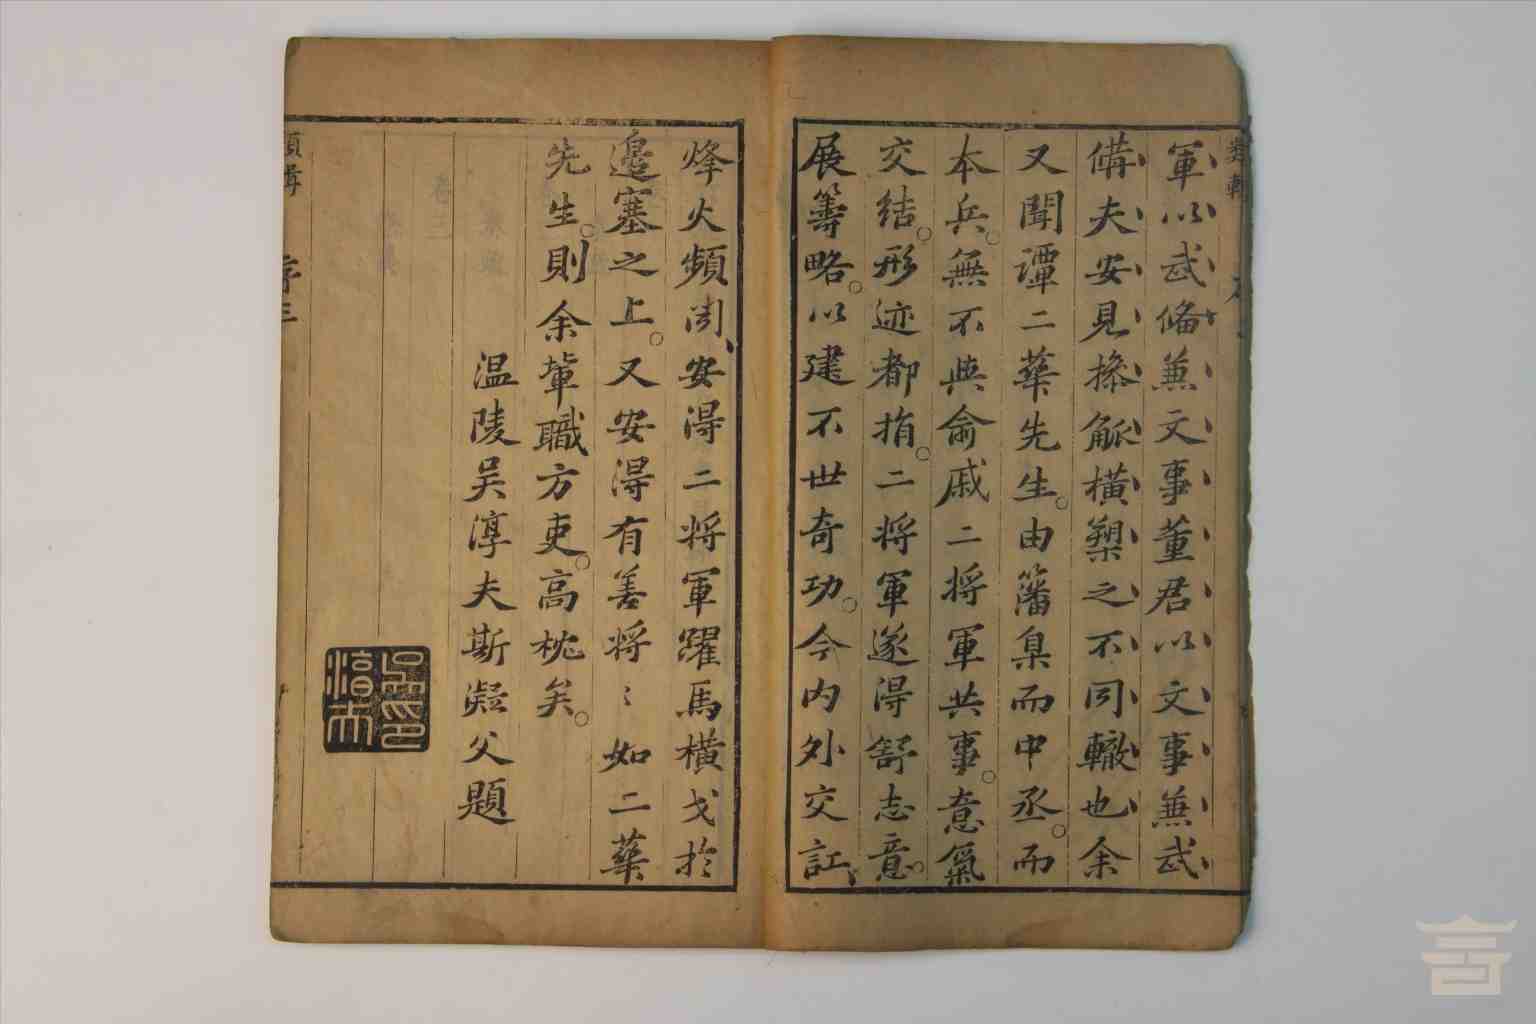 軍以武備兼文事董君以文事兼武
備夫安見搽觚橫槊之不同轍也余
又聞譚二華先生由籓臬而中丞而
本兵無不與俞戚二将軍共事意氣
交結形迹都捐二将軍遂得舒志意
展籌略以建不世奇功今内外交訌
烽火頻聞安得二将軍躍馬橫戈於
邊塞之上又安得有善将〻如二華
先生則余輩職方吏高枕矣
温陵吴淳夫斯凝父題
吳淳夫印
序三